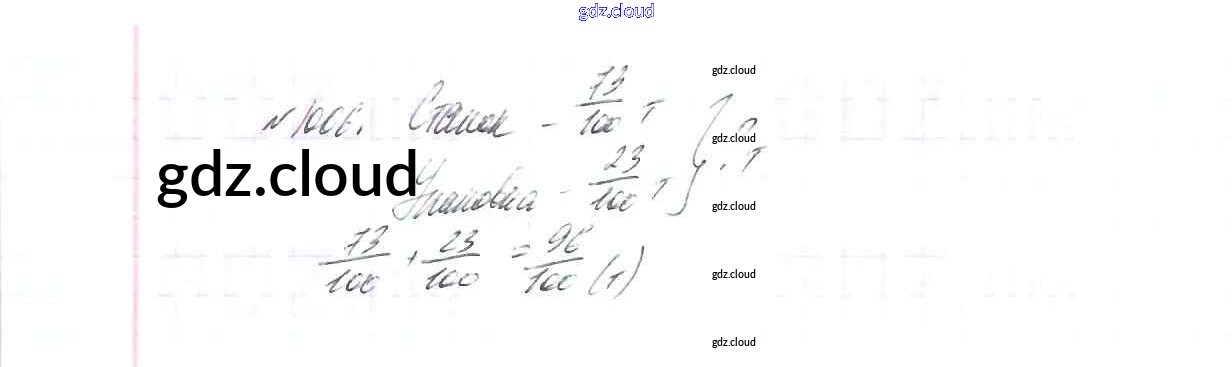 gdz.cloud
gdz.cloud
N 1006. Станок - 73/100 т
gdz.cloud
} ? т
gdz.cloud
Упаковка - 23/100 т
gdz.cloud
73/100 + 23/100 = 96/100 (т)
gdz.cloud
gdz.cloud